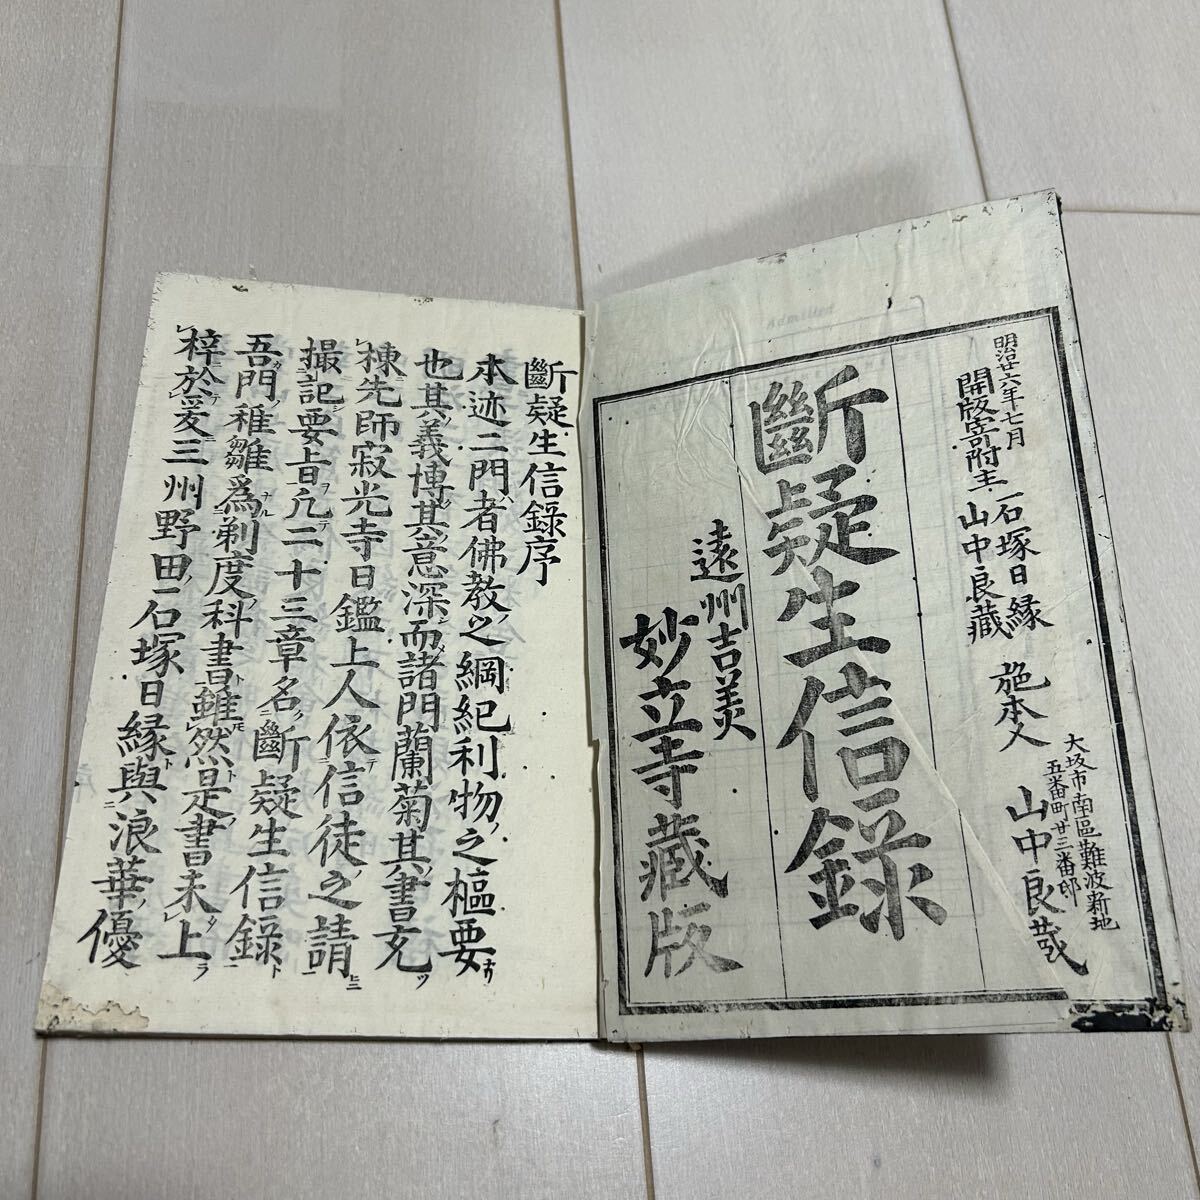 明治廿六年七月
開版寄附主 石塚日縁
山中良藏
施本人
大坂市南區難波新地
五番町廿三番邸
山中良藏
斷疑生信錄
遠州吉美
妙立寺藏版
斷疑生信錄序
本迹二門者佛教之綱紀利物之樞要ナリ
也其義博其意深而諸門蘭菊其書充ツ
棟先師寂光寺日鑑上人依テ信徒之請ニ
撮記要旨凡二十三章名斷疑生信錄ト
吾門稚雛爲ナル剃度科書雖然トモ是書未タ上ラ
梓於爰三州野田石塚日縁與浪華優